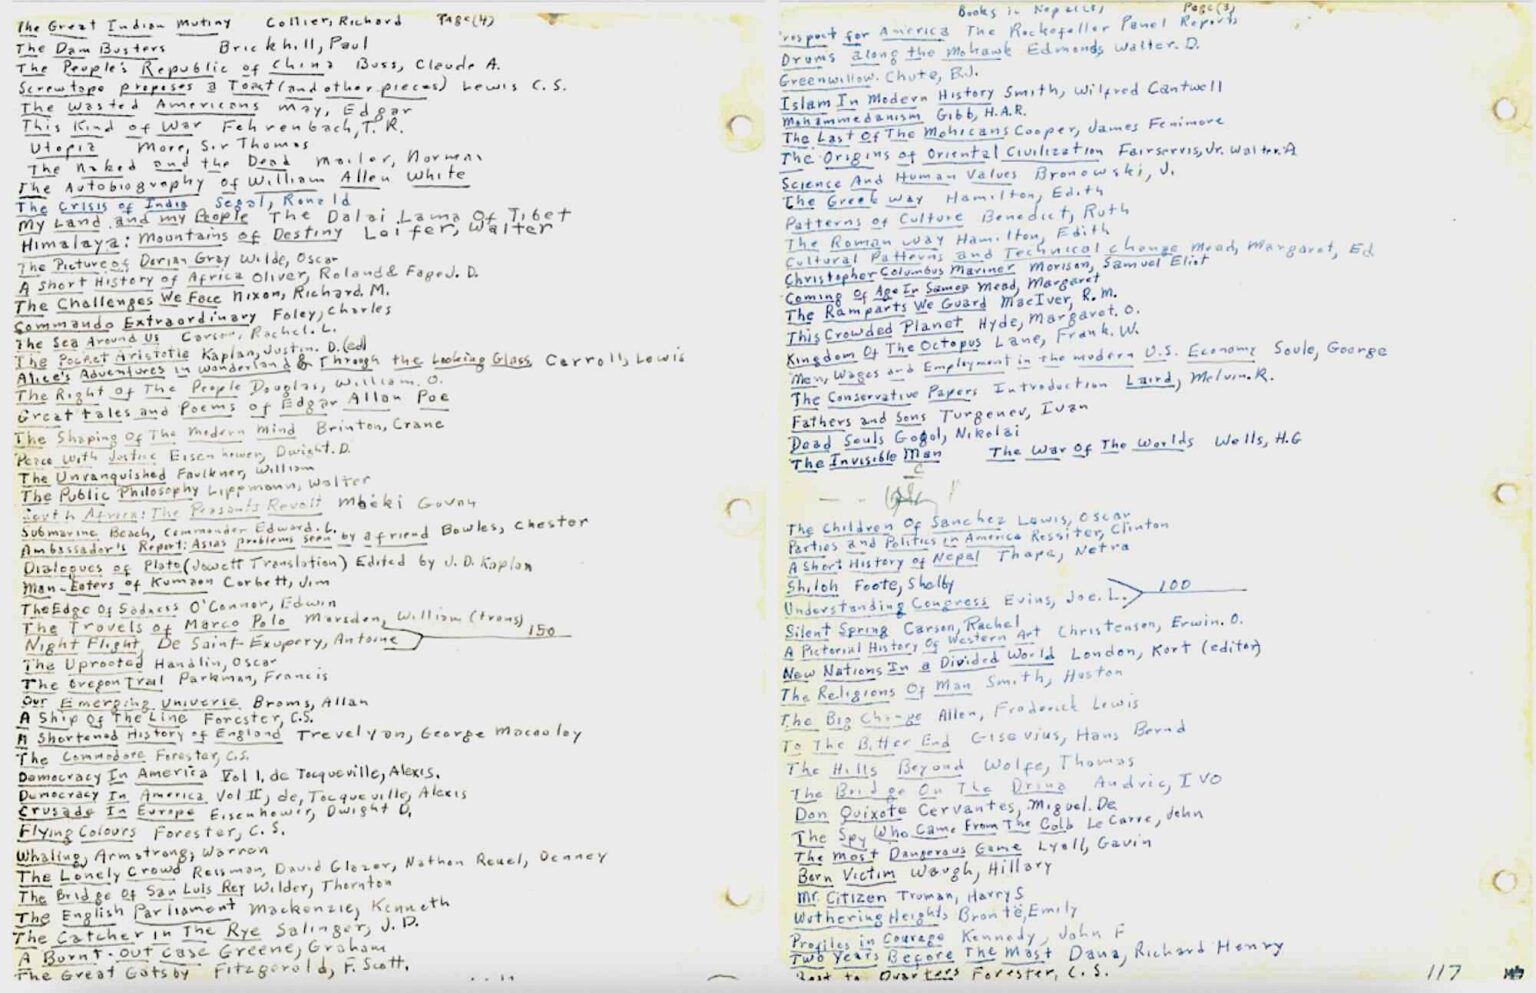 The Great Indian Mutiny Collier, Richard Page (4)
The Dam Busters Brickhill, Paul
The People's Republic of China Buss, Claude A.
Screwtape proposes a Toast (and other pieces) Lewis C.S.
The Wasted Americans May, Edgar
This Kind of War Fehrenbach, T. R.
Utopia More, Sir Thomas
The Naked and the Dead Mailer, Norman
The Autobiography of William Allen White
The Crisis of India Segal, Ronald
My Land and my People The Dalai Lama Of Tibet
Himalaya: Mountains of Destiny Leifer, Walter
The Picture of Dorian Gray Wilde, Oscar
A Short History of Africa Oliver, Roland & Fage J. D.
The Challenges We Face Nixon, Richard. M.
Commando Extraordinary Foley, Charles
The Sea Around Us Carson, Rachel. L.
The Pocket Aristotle Kaplan, Justin. D. (ed)
Alice's Adventures in Wonderland & Through the Looking Glass Carroll, Lewis
The Right of The People Douglas, William. O.
Great tales and Poems of Edgar Allan Poe
The Shaping Of The Modern Mind Brinton, Crane
Peace With Justice Eisenhower, Dwight. D.
The Unvanquished Faulkner, William
The Public Philosophy Lippmann, Walter
South Africa: The Peasants Revolt Mbeki Govan
Submarine Beach, Commander Edward. L.
Ambassador's Report: Asias problems seen by a friend Bowles, Chester
Dialogues of Plato (Jowett Translation) Edited by J. D. Kaplan
Man-Eaters of Kumaon Corbett, Jim
The Edge Of Sadness O'Connor, Edwin
The Travels of Marco Polo Marsden, William (trans)
Night Flight, De Saint-Exupery, Antoine 150
The Uprooted Handlin, Oscar
The Oregon Trail Parkman, Francis
Our Emerging Universe Broms, Allan
A Ship Of The Line Forester, C.S.
A Shortened History of England Trevelyan, George Macaulay
The Commodore Forester, C.S.
Democracy In America Vol I, de Tocqueville, Alexis.
Democracy In America Vol II, de, Tocqueville, Alexis
Crusade In Europe Eisenhower, Dwight D.
Flying Colours Forester, C. S.
Whaling, Armstrong, Warren
The Lonely Crowd Reisman, David Glazer, Nathan Reuel, Denney
The Bridge Of San Luis Rey Wilder, Thornton
The English Parliament Mackenzie, Kenneth
The Catcher in The Rye Salinger, J. D.
A Burnt-Out Case Greene, Graham
The Great Gatsby Fitzgerald, F. Scott.
Books in Nepal Page (3)
rospect for America The Rockefeller Panel Reports
Drums along the Mohawk Edmonds Walter. D.
Greenwillow. Chute, B.J.
Islam In Modern History Smith, Wilfred Cantwell
Mohammedanism Gibb, H.A.R.
The Last Of The Mohicans Cooper, James Fenimore
The Origins of Oriental Civilization Fairservis, Jr. Walter. A
Science And Human Values Bronowski, J.
The Greek Way Hamilton, Edith
Patterns of Culture Benedict, Ruth
The Roman Way Hamilton, Edith
Cultural Patterns and Technical change Mead, Margaret, Ed.
Christopher Columbus Mariner Morison, Samuel Eliot
Coming Of Age In Samoa Mead, Margaret
The Ramparts We Guard MacIver, R. M.
This Crowded Planet Hyde, Margaret. O.
Kingdom Of The Octopus Lane, Frank. W.
Men, Wages and Employment in the modern U.S. Economy Soule, George
The Conservative Papers Introduction Laird, Melvin. R.
Fathers and Sons Turgenev, Ivan
Dead Souls Gogol, Nikolai
The Invisible Man The War Of The Worlds Wells, H.G
The Children Of Sanchez Lewis, Oscar
Parties and Politics in America Rossiter, Clinton
A Short History of Nepal Thapa, Netra
Shiloh Foote, Shelby
Understanding Congress Evins, Joe. L. 100
Silent Spring Carson, Rachel
A Pictorial History Of Western Art Christensen, Erwin. O.
New Nations In a Divided World London, Kurt (editor)
The Religions Of Man Smith, Huston
The Big Change Allen, Frederick Lewis
To The Bitter End Gisevius, Hans Bernd
The Hills Beyond Wolfe, Thomas
The Bridge On The Drina Andric, IVO
Don Quixote Cervantes, Miguel. De
The Spy Who Came From The Cold Le Carre, John
The Most Dangerous Game Lyall, Gavin
Born Victim Waugh, Hillary
Mr. Citizen Truman, Harry S
Wuthering Heights Brontë, Emily
Profiles in Courage Kennedy, John F
Two Years Before The Mast Dana, Richard Henry
Beat to Quarters Forester, C. S.
117